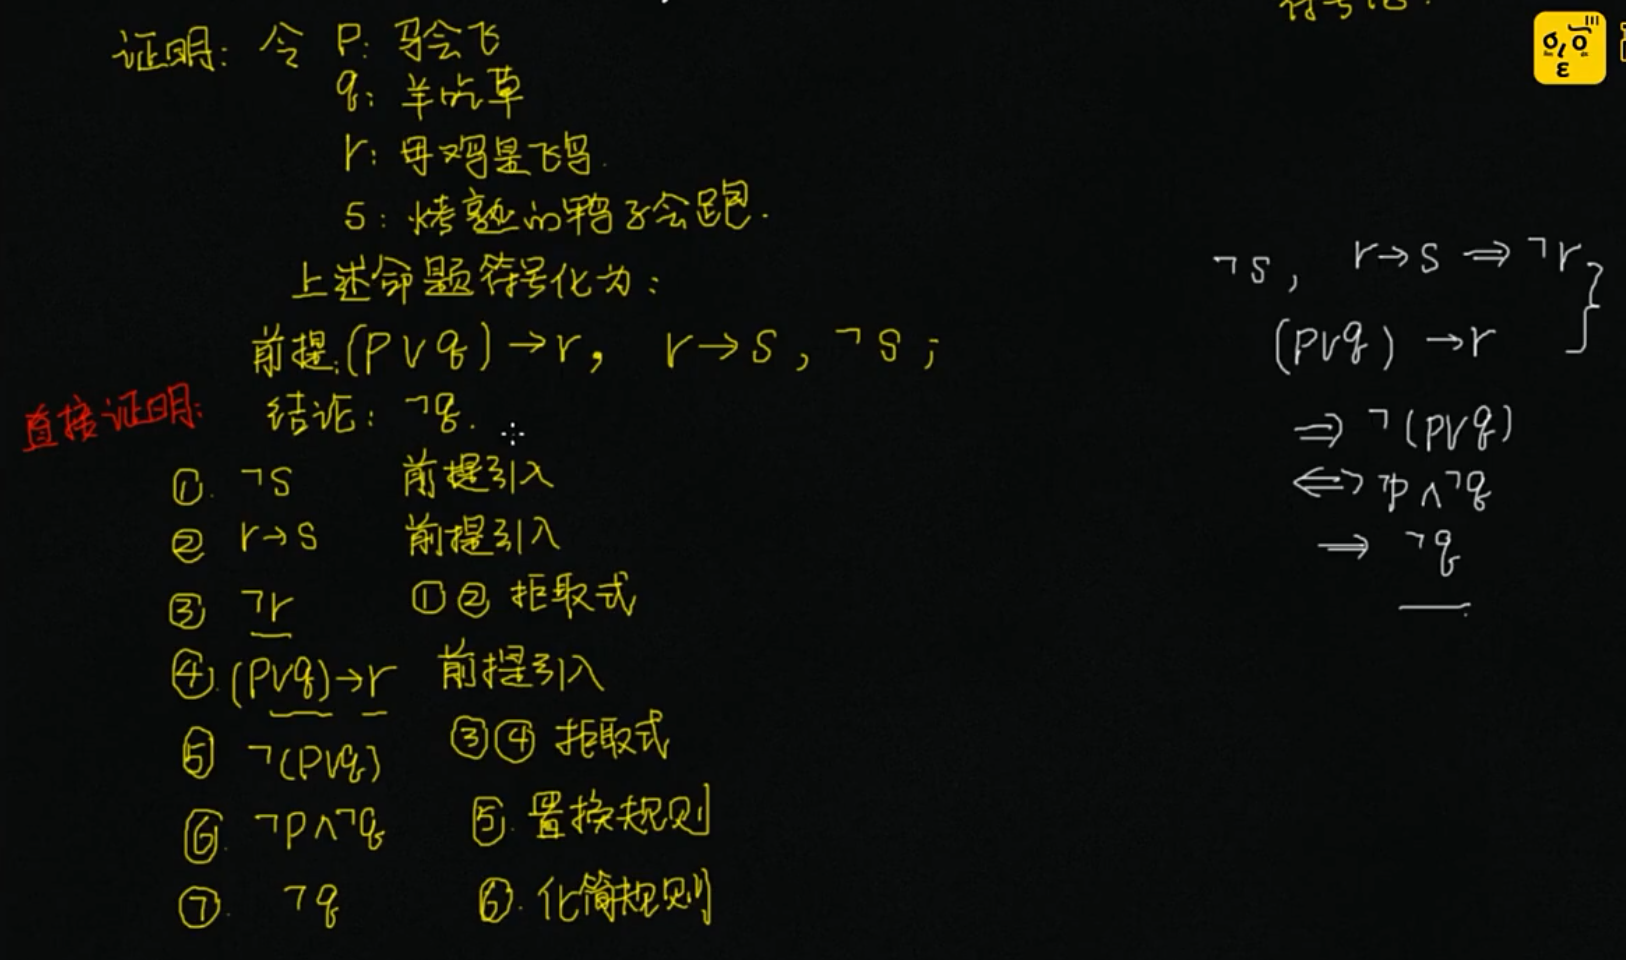 证明: 令 P: 马会飞
q: 羊吃草
r: 母鸡是飞鸟.
s: 烤熟的鸭子会跑.
上述命题符号化为:
前提:(P∨q)→r, r→s, ¬s;
直接证明: 结论: ¬q.
①. ¬s 前提引入
② r→s 前提引入
③ ¬r ①② 拒取式
④.(P∨q)→r 前提引入
⑤ ¬(P∨q) ③④ 拒取式
⑥. ¬P∧¬q ⑤. 置换规则
⑦. ¬q ⑥. 化简规则
¬s, r→s ⇒ ¬r
(P∨q) →r
⇒ ¬(P∨q)
⇔ ¬P∧¬q
⇒ ¬q